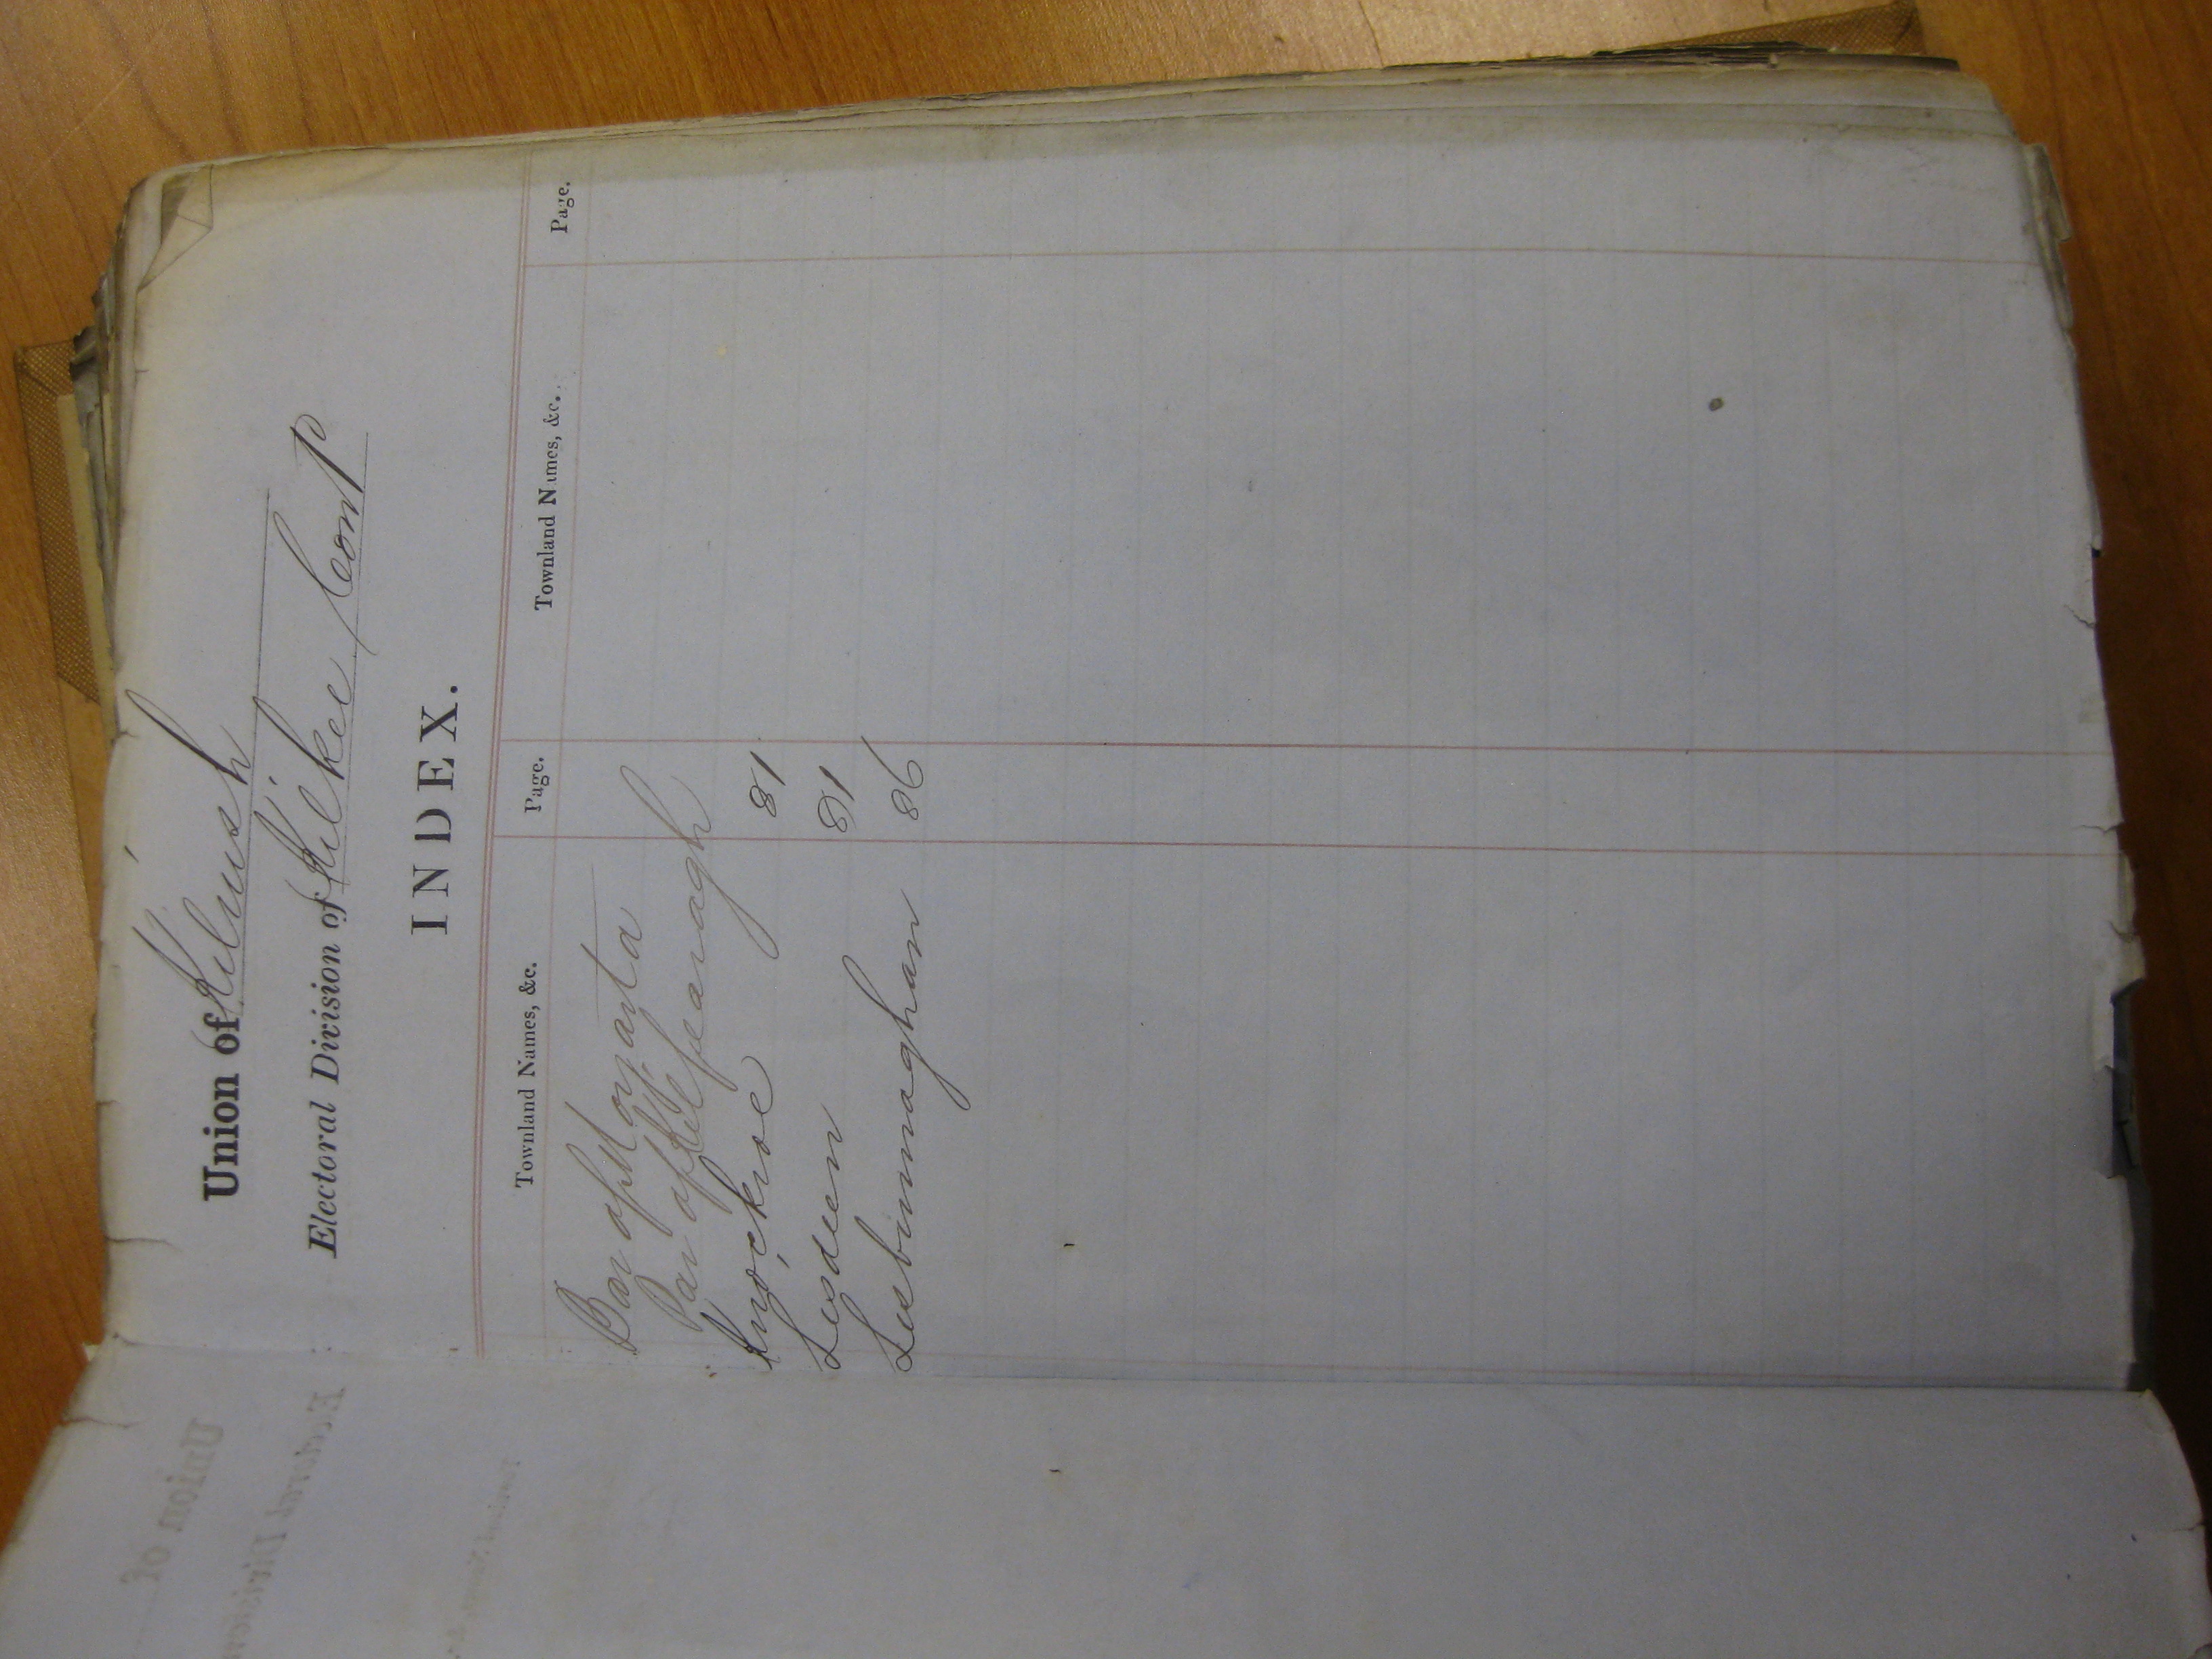 Union of Kilrush
Electoral Division of Kilkee Cont
INDEX.
Townland Names, &c. Page. Townland Names, &c. Page.
Bar of Moyarta
Par of Kilfearagh
Knockroe 81
Lisdeen 81
Lisbunnaghan 86
Union of
Electoral Division
Townland Names, &c.